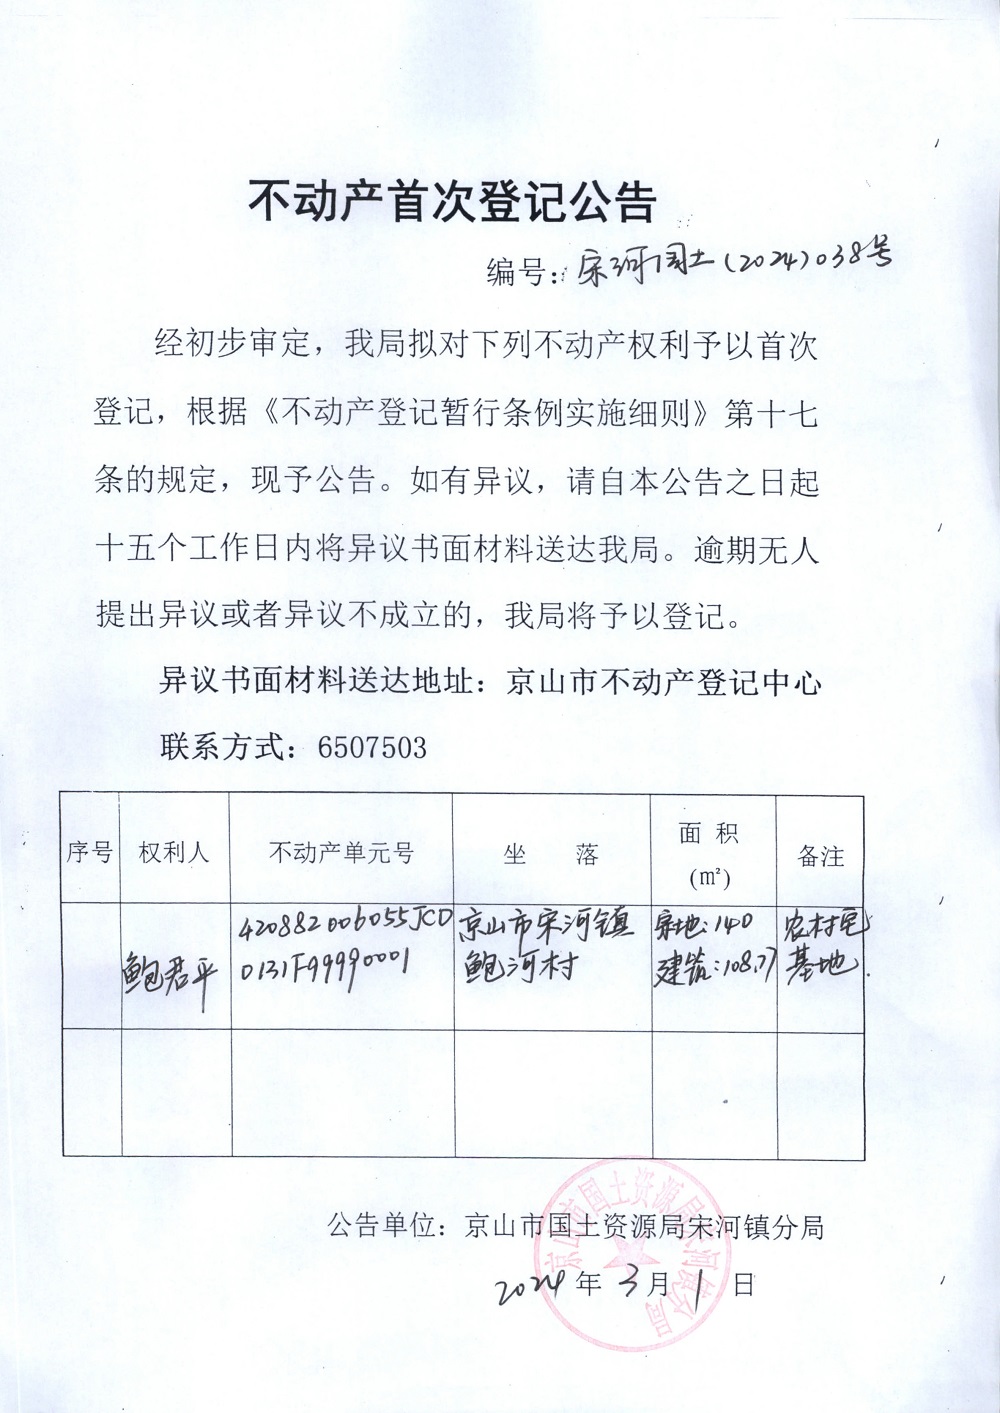 不动产首次登记公告
编号：宋河国土(2024)038号
经初步审定，我局拟对下列不动产权利予以首次
登记，根据《不动产登记暂行条例实施细则》第十七
条的规定，现予公告。如有异议，请自本公告之日起
十五个工作日内将异议书面材料送达我局。逾期无人
提出异议或者异议不成立的，我局将予以登记。
异议书面材料送达地址：京山市不动产登记中心
联系方式：6507503
序号 权利人 不动产单元号 坐 落 面 积 (㎡) 备注
鲍君平 420882006055JC00131F99990001 京山市宋河镇鲍河村 宗地:140 建筑:108.77 农村宅基地
公告单位：京山市国土资源局宋河镇分局
2024年3月1日
京山市国土资源局宋河镇分局